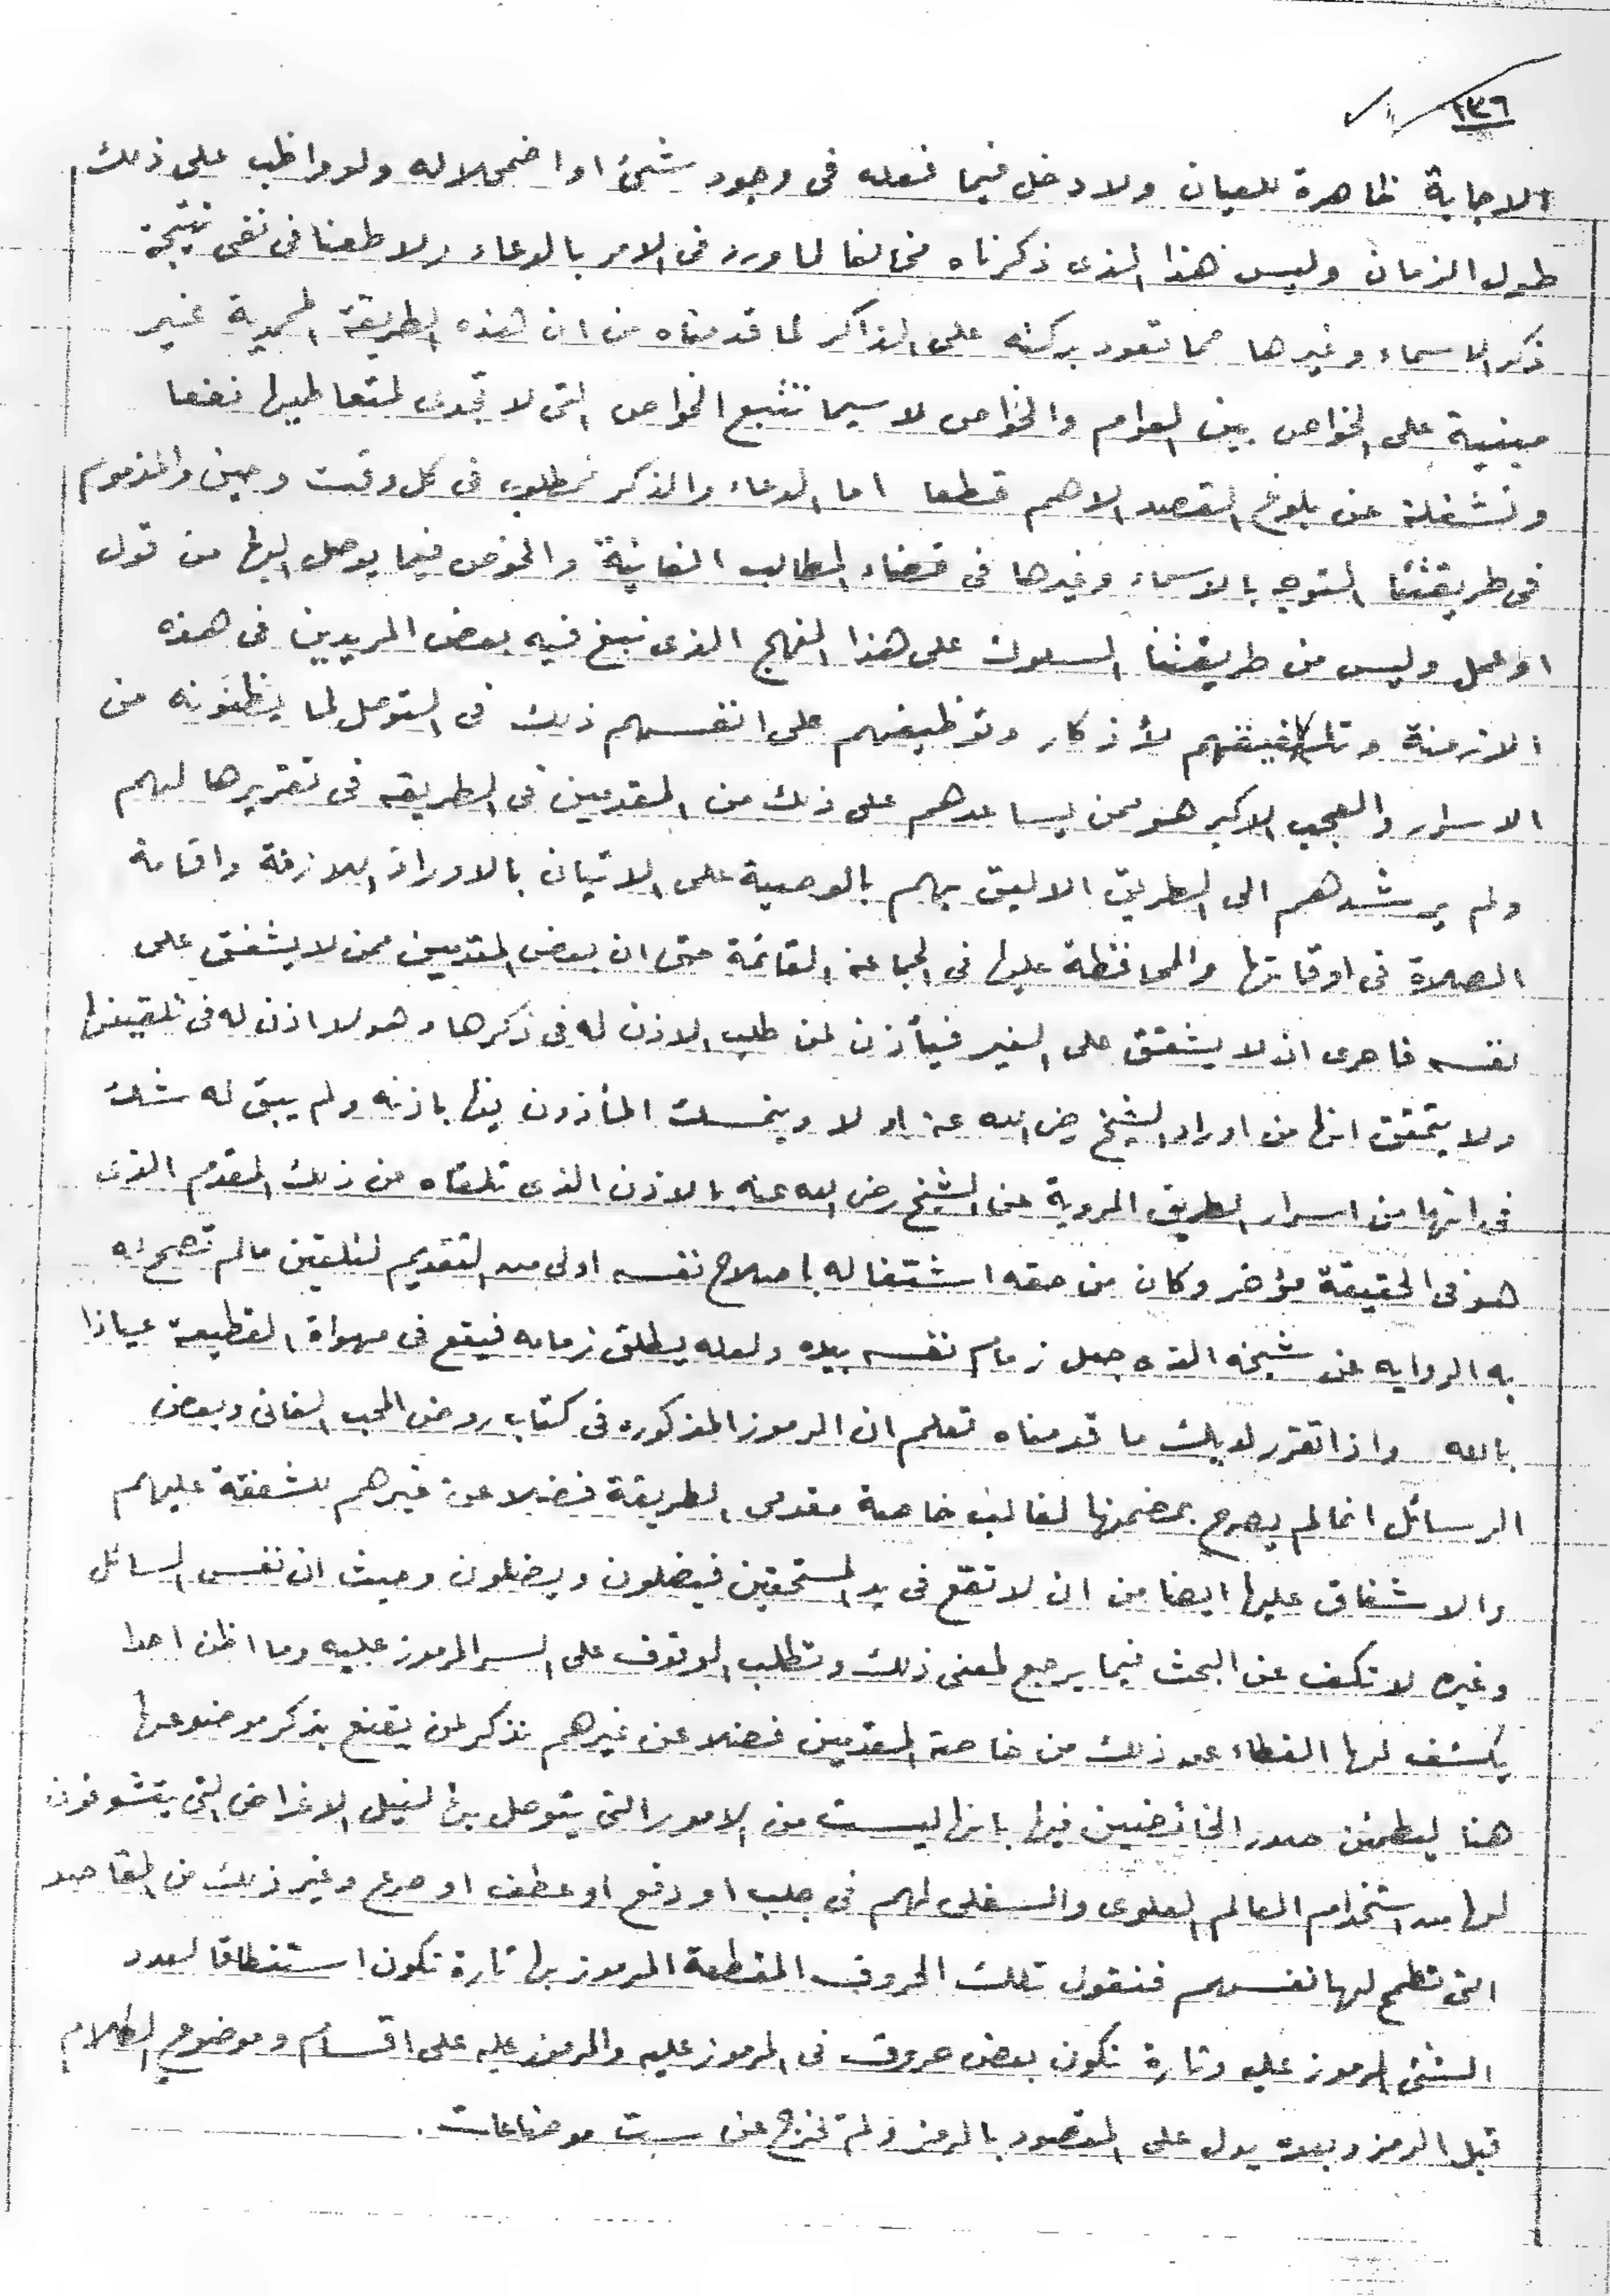 ١٣٦
الاجابة ظاهرة للعيان ولا دخل فيما فعله فى وجود شئ او اضمحلاله ولو واظب على ذلك
طول الزمان وليس هذا الذى ذكرناه مخالفا لما ورد فى الامر بالدعاء ولا طعنا فى نفى نتيجة
ذكر الاسماء وغيرها مما تعود بركته على الذاكر لما قدمناه من ان هذه الطريقة المحمدية غير
مبنية على الخواص بين العوام والخواص لا سيما تتبع الخواص التى لا تجدى لمتعاطيها نفعا
وتشغله عن بلوغ المقصد الاهم قطعا اما الدعاء والذكر فمطلوب فى كل وقت وحين والمذموم
فى طريقتنا التوجه بالاسماء وغيرها فى قضاء المطالب الفانية والخوض فيما يوصل اليها من قول
او عمل وليس من طريقتنا السلوك على هذا النهج الذى نبغ فيه بعض المريدين فى هذه
الازمنة وتلفيقهم لأذكار وتوظيفهم على انفسهم ذلك فى التوصل لما يظنونه من
الاسرار والعجب الاكبر هو ممن يساعدهم على ذلك من المقدمين فى الطريقه فى تقريرها لهم
ولم يرشدهم الى الطريق الاليق بهم بالوصية على الاتيان بالاوراد اللازمة واقامة
الصلاة فى اوقاتها والمحافظة عليها فى الجماعة القائمة حتى ان بعض المقدمين ممن لا يشفق على
نفسه فاحرى ان لا يشفق على الغير فيأذن لمن طلب الاذن له فى ذكرها وهو لا اذن له فى تلقينها
ولا يتحقق انها من اوراد الشيخ رضى الله عنه او لا ويتمسك المأذون فيها باذنه ولم يبق له شك
فى انها من اسرار الطريق المروية عن الشيخ رضى الله عنه بالاذن الذى تلقاه من ذلك المقدم الذى
هو فى الحقيقة مؤخر وكان من حقه اشتغاله باصلاح نفسه اولى من التقديم لتلقين مالم تصح له
به الروايه عن شيخه الذى جعل زمام نفسه بيده ولعله يطلق زمامه فيقع فى مهواة القطيعة عياذا
بالله واذا تقرر لديك ما قدمناه تعلم ان الرموز المذكوره فى كتاب روض المحب الفانى وبعض
الرسائل انما لم يصرح بمضمنها لغالب خاصة مقدمى الطريقة فضلا عن غيرهم للشفقة عليهم
والاشفاق عليها ايضا من ان لا تقع فى يد المستحقين فيضلون ويضلون وحيث ان نفس السائل
وغيره لا تكف عن البحث فيما يرجع لمعنى ذلك وتطلب الوقوف على السر المرموز عليه وما اظن احدا
يكشف لها الغطاء عن ذلك من خاصة المقدمين فضلا عن غيرهم نذكر لمن يقنع بذكر موضوعها
هنا ليطمئن صدر الخائضين فيها بانها ليست من الامور التى يتوصل بها لنيل الاغراض التى يتشوفون
لها من استخدام العالم العلوى والسفلى لهم فى جلب او دفع او عطف او صرع وغير ذلك من المقاصد
التى تطمح لها نفسهم فنقول تلك الحروف المقطعة المرموز بها تارة تكون استنطاقا لعدد
الشئ المرموز عليه وتارة تكون بعض حروف فى المرموز عليه والمرموز عليه على اقسام وموضوع الكلام
قبل الرمز وبعده يدل على المقصود بالرمز ولم تخرج عن ست موضاعات .